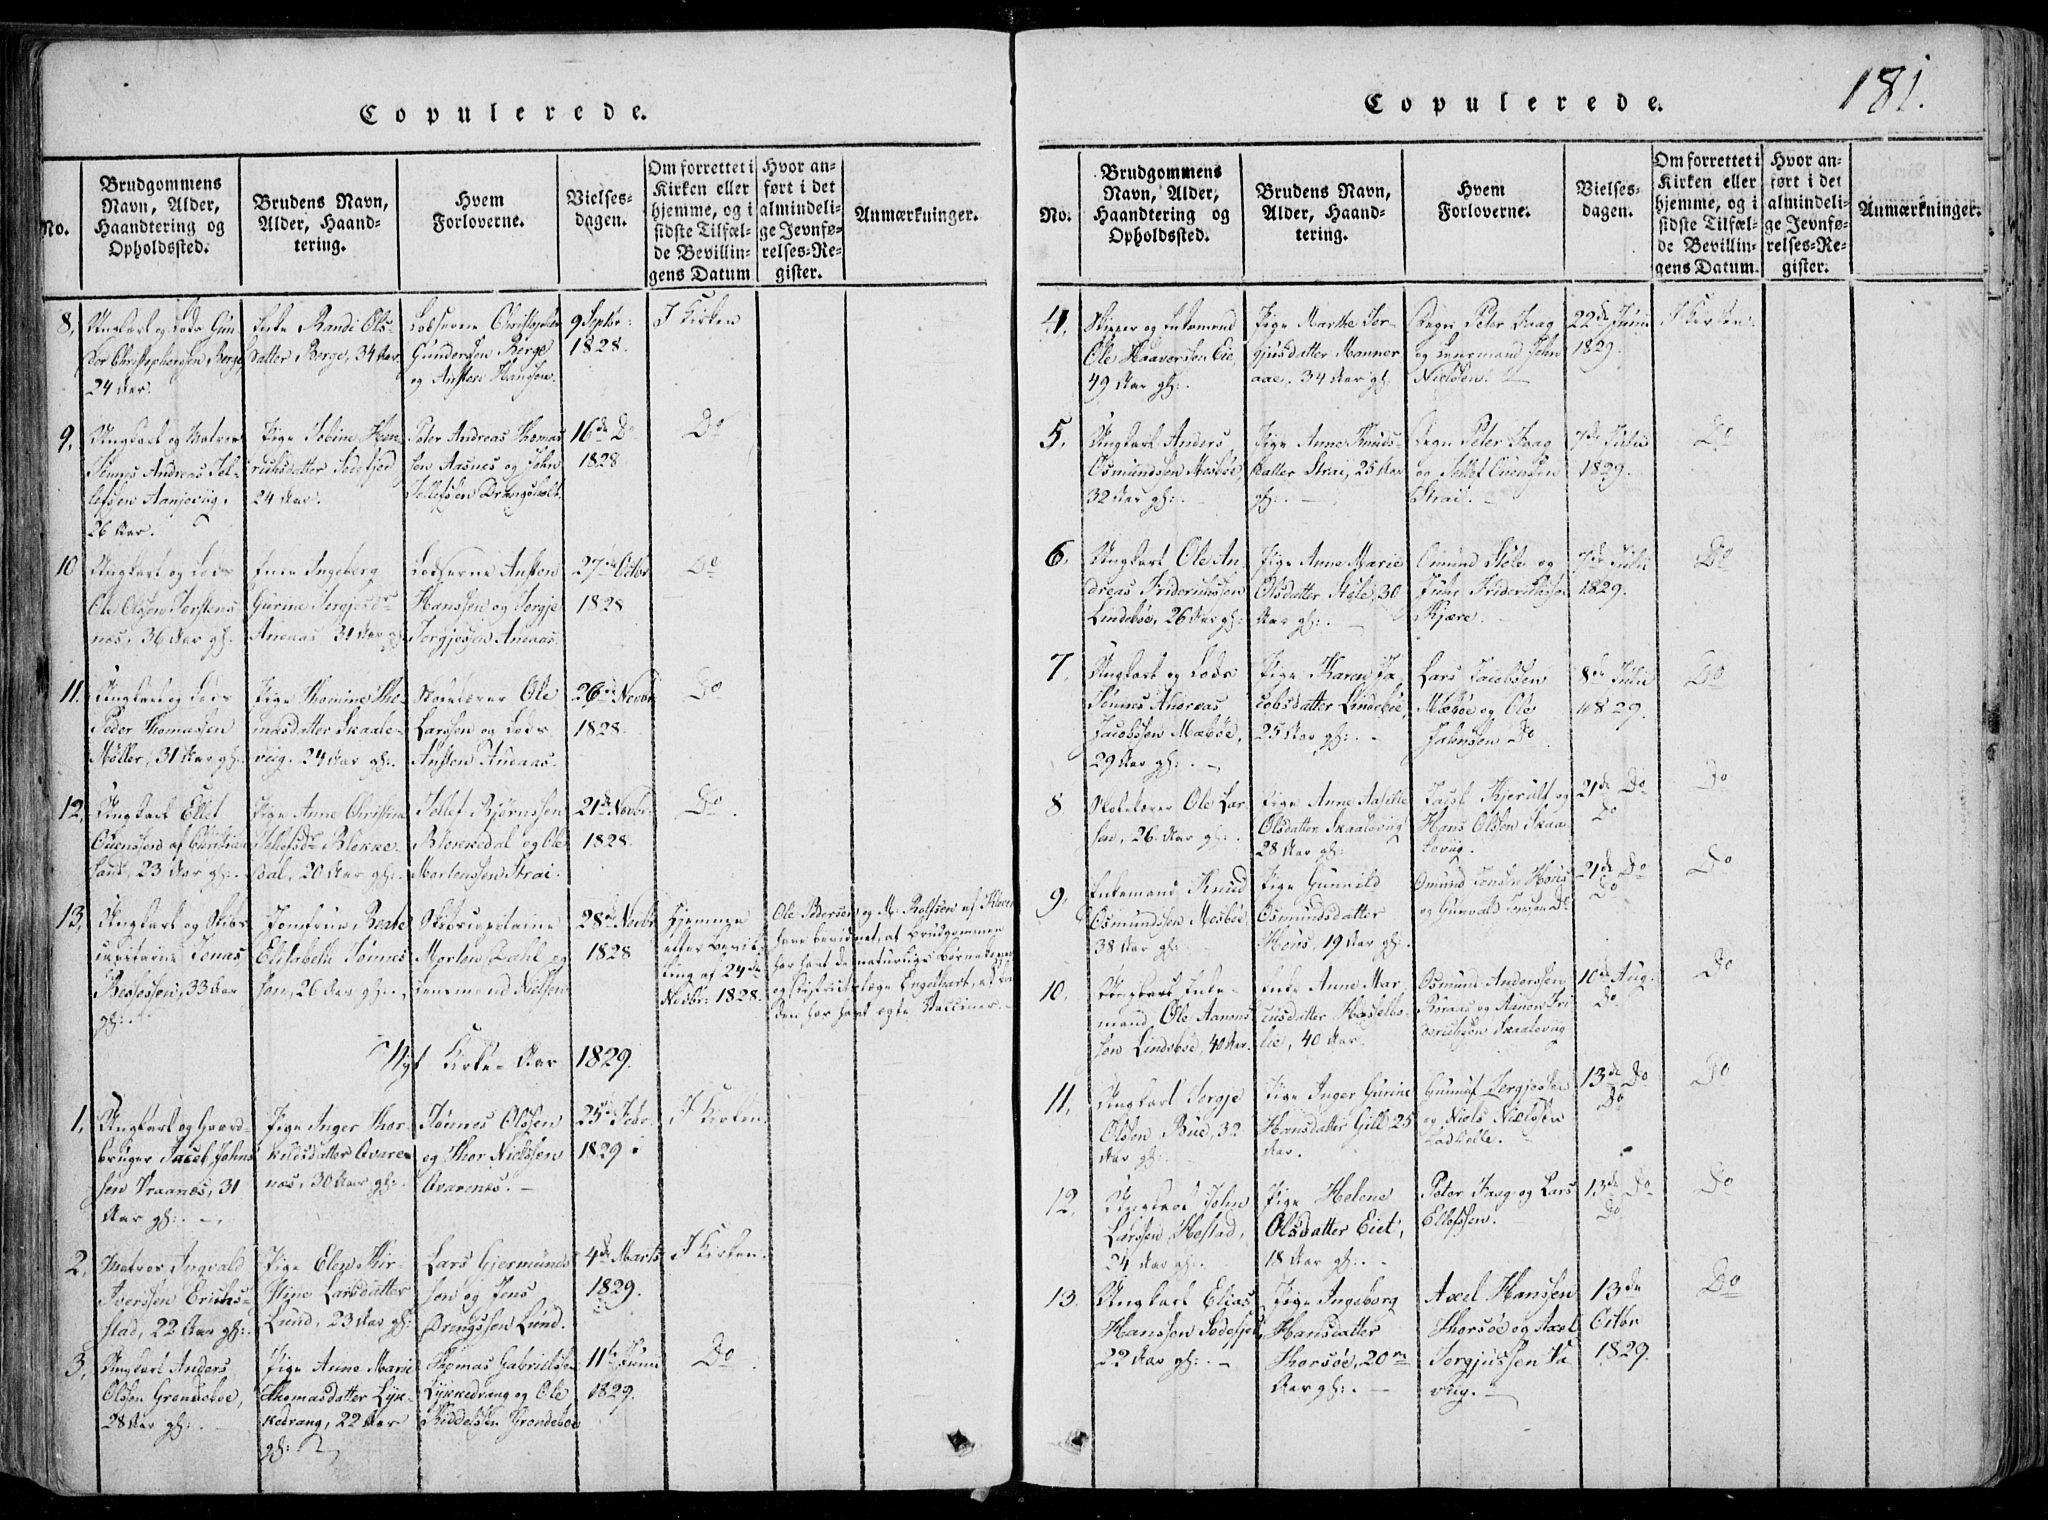 Copulerede.
No.
Brudgommens
Navn, Alder,
Haandtering og
Opholdssted.
Brudens Navn,
Alder, Haand-
tering.
Hvem
Forloverne.
Vielses-
dagen.
Om forrettet i
Kirken eller
hjemme, og i
sidste Tilfæl-
de Bevillin-
gens Datum
Hvor an-
ført i det
almindeli-
ge Jevnfø-
relses-Re-
gister.
Anmærkninger.
8,
Ungkarl og Lods Gun-
Christophersen, Berge
24 Aar.
Enke Randi Ols-
datter Berge, 34 Aar
Lodserne Christopher
Gundersen Berge
og Ansten Hansen.
9 Septbr:
1828.
I Kirken
9,
Ungkarl og Matros
Tönnes Andreas Tel-
lefsen Aanjeviig,
26 Aar.
Pige Tobine Hen-
richsdatter Sodefjed
24 Aar.
Peter Andreas Thomas
sen Aasnes og John
Tellefsen Drangsholt.
16de Do
1828
Do
10
Ungkarl og Lods
Ole Olssen Torstens
nes, 36 Aar gl:.
Enke Ingeborg
Gurine Tergjesdr
Aneaas 31 Aar gl
Lodserne Ansten
Hanssen og Tergje
Tergjesen Aneaas.
27de Octbr
1828
Do
11.
Ungkarl og Lods
Peder Thomassen
Møller, 31 Aar gl:.
Pige Thomine Tho-
masdatter Skaale-
viig. 24 Aar gl:.
Skolelærer Ole
Larssen og Lods
Ansten Aneaas.
26de Novbr
1828.
Do
12,
Ungkarl Ellef
af Christian
sand, 23 Aar gl:.
Pige Anne Christine
Tellefsdr Blekke-
dal, 20 Aar gl:.
Tellef Bjørnssen
Blekkedal og Ole
Mortenssen Strai.
21de Novbr
1828.
Do.
13,
Ungkarl og Skibs
capitaine Jonas
33 Aar
gl:.
Jomfrue Beate
Elisabeth Tönnes
sen, 26 Aar gl:.
Skibscapitaine
Morten Dahl og
Lensmand Nielsen
28de Novbr
1828
Hjemme
efter Bevil-
ling af 24de
Novbr: 1828.
Ole Pedersen og M: Rolfsen af
have bevidnet, at Brudgommen
har havt de naturlige Børnekopper
og Engelhart, at
den har havt ægte Vacciner.
Nyt Kirke-Aar 1829.
1,
Ungkarl og Gaard-
bruger Jacob Johns
sen Kraanes, 31
Aar gl:.
Pige Inger Thor-
kildsdatter Avare-
nes, 30 Aar gl:.
Tönnes Olssen
og Thor Nielssen
Avarenes.
25de Febr.
1829
I Kirken.
2,
Matros Ingvald
Iverssen Erichs-
stad, 22 Aar gl:.
Pige Elen Kir-
stine Larsdatter
Lund, 23 Aar gl:
Lars Gjermunds
sen og Jens
Lund.
4de Marts
1829.
I Kirken.
3,
Ungkarl Anders
Olssen Grændebøe,
28 Aar gl:.
Pige Anne Marie
Thomasdatter Lyk-
kedrang, 22 Aar
gl:
Thomas Gabrielsen
Lykkedrang og Ole
Grændebøe
11te Juni
1829.
Do.
Copulerede.
181.
No.
Brudgommens
Navn, Alder,
Haandtering og
Opholdssted.
Brudens Navn,
Alder, Haand-
tering.
Hvem
Forloverne.
Vielses-
dagen.
Om forrettet i
Kirken eller
hjemme, og i
sidste Tilfæl-
de Bevillin-
gens Datum.
Hvor an-
ført i det
almindeli-
ge Jevnfø-
relses-Re-
gister.
Anmærkninger.
4,
Skipper og Enkemand
Ole Haaverssen Eie,
49 Aar gl:.
Pige Marthe Ter-
gjusdatter Monner
aae. 34 Aar gl:
Degn Peter Faag
og Lensmand John
Nielssen.
22de Juni
1829.
I Kirken.
5.
Ungkarl Anders
Osmundssen Mesbøe,
32 Aar gl:.
Pige Anne Knuds-
datter Strai, 25 Aar
gl:.
Degn Peter Faag
og Tellef
Strai.
7de Julii
1829.
Do
6.
Ungkarl Ole An-
dreas Friderichssen
Lindebøe, 26 Aar gl:.
Pige Anne Marie
Olsdatter Støle, 30
Aar gl:.
Omund Støle og
Friderichsen
Kjære.
7de Julii
1829.
Do
7.
Ungkarl og Lods
Tönnes Andreas
Jacobssen Mæbøe,
29 Aar gl:.
Pige Karen Ja-
cobsdatter Lindebøe,
25 Aar gl:.
Lars Jacobssen
Mæbøe og Ole
Jahnsen Do
8de Julii
1829.
Do
8
Skolelærer Ole Lar-
sen, 26 Aar gl:.
Pige Anne Aasille
Olsdatter Skaalevig
28 Aar gl:
Jacob Kjerulf og
Hans Olssen Skaa-
levig.
21de Do
Do
Do
9,
Enkemand Knud
Osmundssen Mesbøe,
38 Aar gl:.
Pige Gunnild
Osmundsdatter
Høus, 19 Aar gl:.
Omund Jenssen Høus
og Gunvald Do
21de Do
Do
Do
10.
Ungkarl Enke-
mand Ole Aanons
sen Lindebøe, 40 Aar.
Enke Anne Mar-
cusdatter Hasselbo-
lie, 40 Aar.
Osmund Anderssen
Roraas og Aanon Fri
derichssen Skaalevig
10de Aug.
Do
Do
11.
Ungkarl Tergje
Olssen Büe, 32
Aar gl:.
Pige Inger Gurine
Hansdatter Gill, 25
Aar.
Gunuf Tergjessen
og Niels Nielssen
13de Do
Do
Do
12.
Ungkarl John
Larssen Høstad,
24 Aar gl:.
Pige Helene
Olsdatter Eiet,
18 Aar gl:.
Peter Faag og Lars
Ellefssen.
13de Do
Do
Do
13.
Ungkarl Elias
Hanssen Sodefjed,
22 Aar gl:.
Pige Ingeborg
Hansdatter
Thorsøe, 20
Aar gl:.
Axel Hansen
Thorsøe og Axel
Tergjussen Va-
viig.
13de
Octbr
1829.
Do